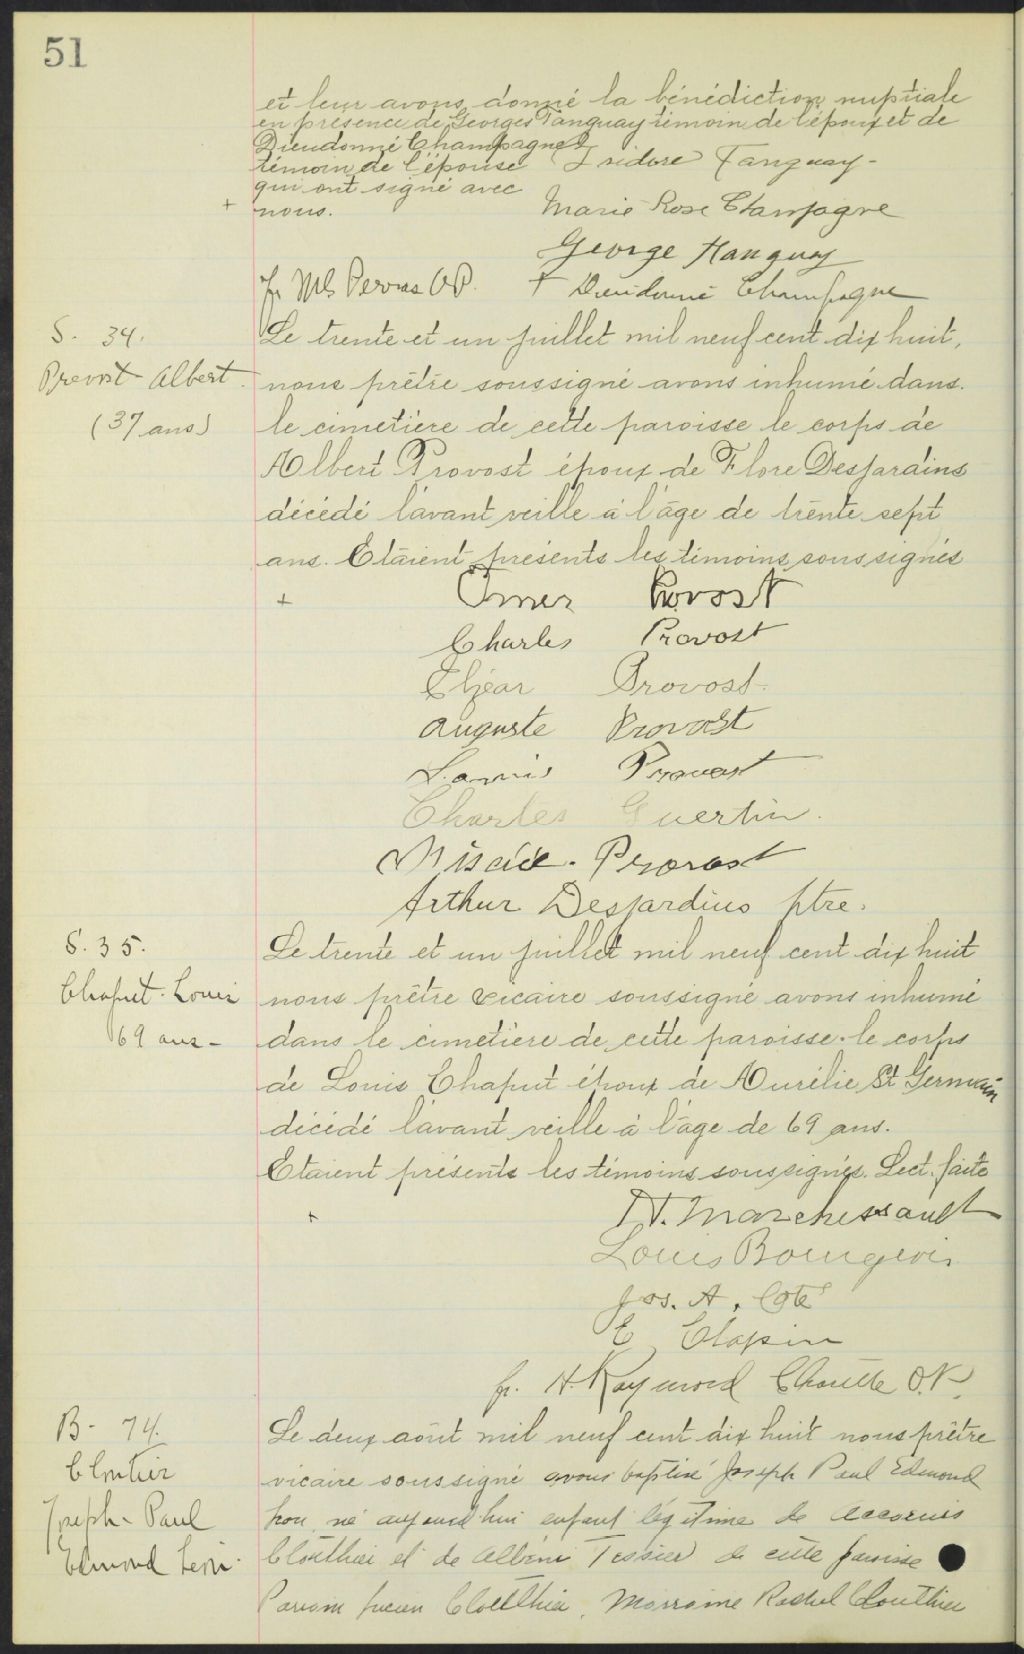 51
et leur avons donné la bénédiction nuptiale
en présence de Georges Tanguay témoin de l'époux et de
Dieudonné Champagne
témoin de l'épouse Isidore Tanguay-
qui ont signé avec
+ nous. Marie Rose Champagne
George Tanguay
fr Ml O.P. + Dieudonné Champagne
S. 34.
Prevost Albert.
(37 ans)
Le trente et un juillet mil neuf cent dix huit,
nous prêtre soussigné avons inhumé dans.
le cimetière de cette paroisse le corps de
Albert Provost époux de Flore Desjardins
décédé l'avant veille à l'âge de trente sept
ans. Etaient présents les témoins soussignés
+ Omer Provost
Charles Provost
Elzéar Provost.
Auguste Provost
Louis Provost
Charles Guertin.
Provost
Arthur Desjardins ptre.
S. 35.
Chaput. Louis
69 ans-
Le trente et un juillet mil neuf cent dix huit
nous prêtre vicaire soussigné avons inhumé
dans le cimetière de cette paroisse. le corps
de Louis Chaput époux de Aurélie St Germain
décédé l'avant veille à l'âge de 69 ans.
Etaient présents les témoins soussignés. Lect. faite
+ H. Marchessault
Louis Bourgeois
Jos. A. Coté
E Clapin
fr. H. Raymond O.P.
B- 74.
Cloutier
Joseph- Paul
Edmond Léon.
Le deux août mil neuf cent dix huit nous prêtre
vicaire soussigné avons baptisé Joseph Paul Edmond
né aujourd'hui enfant légitime de
Clouthier et de Albina Tessier de cette paroisse
Parrain Lucien Clouthier, Marraine Rachel Clouthier